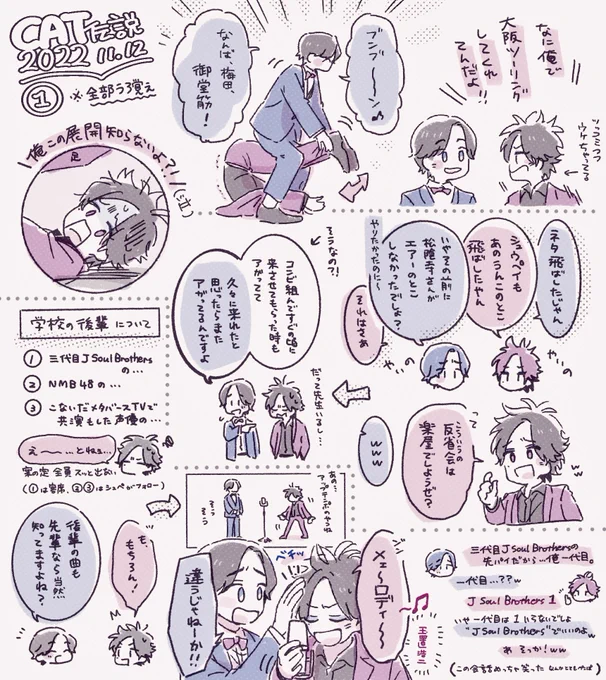 CAT伝説
2022 11.12
① ※全部うろ覚え
なんば、梅田、
御堂筋！
ブンブ〜〜ン♪
なに俺で
大阪ツーリング
してくれ
てんだよ!!
ツッコミつつ
ウケちゃってる。
俺この展開知らないよ?!
足
ネタ飛ばしたじゃん
シュウペイも
あのうんこのとこ
飛ばしたやん
いやその前に
松陰寺さんが
エアーのとこ
しなかったでしょ？
やりたかったのに〜
それはさぁ
やいの
やいの
そうなの?!
コンビ組んですぐの頃に
来させてもらった時も
アガってて
久々に来れたと
思ったらまた
アガってるんですよ
だって先生いるし…
こういうの
反省会は
楽屋でしようぜ？
www
学校の後輩について
① 三代目J Soul Brothers
の…
② NMB48の…
③ こないだメタバースTVで
共演もした声優の…
え〜〜…とねぇ…
案の定全員スッと出ない
(①は客席、②③はシュペがフォロー)
後輩の曲も
先輩なら当然
知ってますよね？
も、
もちろん！
あの…
アップテンポのやつね
そうそう
メェ〜ロディ〜〜
玉置浩二
ペチッ
違うじゃねーか!!
三代目J Soul Brothersの
先パイだから…俺一代目。
一代目…??w
J Soul Brothers 1
いや一代目は1いらないでしょ
"J Soul Brothers"でいいのよw
あ そっか！ww